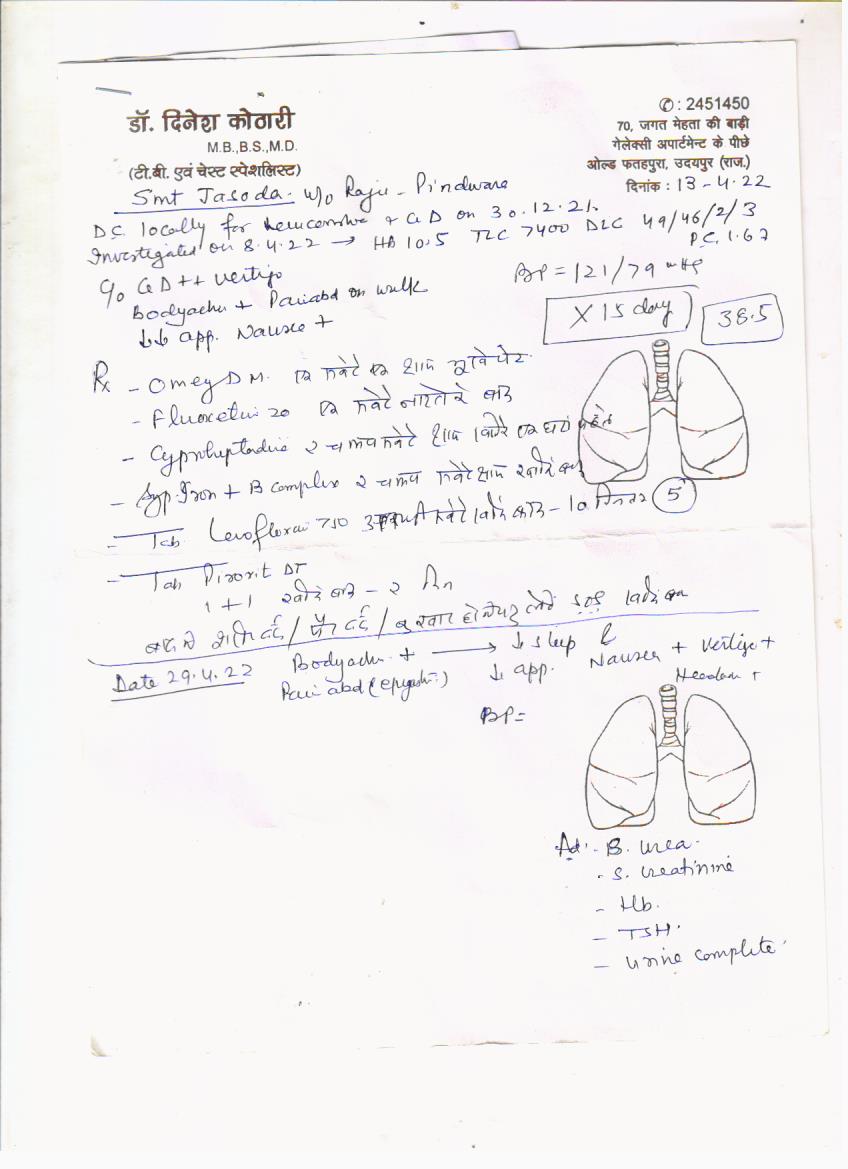 डॉ. दिनेश कोठारी
M.B.,B.S.,M.D.
(टी.बी. एवं चेस्ट स्पेशलिस्ट)
✆ : 2451450
70, जगत मेहता की बाड़ी
गेलेक्सी अपार्टमेन्ट के पीछे
ओल्ड फतहपुरा, उदयपुर (राज.)
दिनांक : 13-4.22
Smt Jasoda. w/o Raju - Pindwara
DC locally for & GD on 30.12.21.
Investigated on 8.4.22 → HB 10.5 TLC 7400 DLC 49/46/2/3
P.C. 1.67
C/o GD++ Vertigo
BP = 121/79 mmHg
Bodyache + Pain abd on walk
↓↓ app. Nausea +
X 15 day
38.5
Rx - Omey DM. एक सवेरे एक शाम भूखे पेट
- Fluoxetin 20 एक सवेरे नाश्ते के बाद
- Cyproheptadine २ चम्मच सवेरे शाम एक घंटा पहले
- Syp. Iron + B complex २ चम्मच सवेरे शाम खाने के बाद
- Tab Levofloxacin 750 सवेरे - 10 5
- Tab DT
1 + 1 खाने के बाद - २ दिन
दर्द / पेट दर्द / बुखार होने पर लेवें SOS
Date 29.4.22 Bodyache + → ↓ sleep
Pain abd ( ↓ app. Nausea + Vertigo +
BP =
Ad: - B. Urea.
- S. Creatinine
- Hb.
- TSH.
- Urine complete.